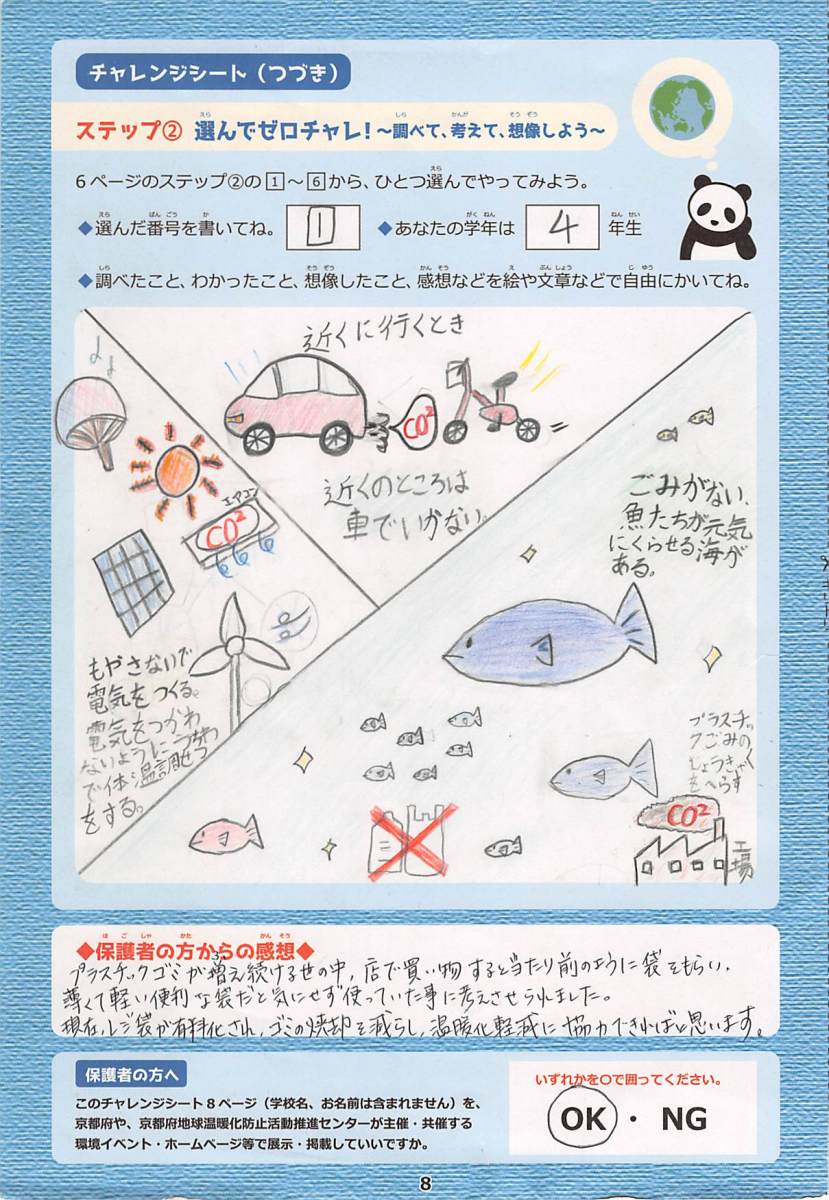 チャレンジシート（つづき）
ステップ② 選んでゼロチャレ！～調べて、考えて、想像しよう～
6ページのステップ②の1～6から、ひとつ選んでやってみよう。
◆選んだ番号を書いてね。 1 ◆あなたの学年は 4 年生
◆調べたこと、わかったこと、想像したこと、感想などを絵や文章などで自由にかいてね。
近くに行くとき
CO²
近くのところは
車でいかない。
エアコン
CO²
もやさないで
電気をつくる。
電気をつかわ
ないようにうちわ
で体温調せつ
をする。
ごみがない、
魚たちが元気
にくらせる海が
ある。
プラスチッ
クごみの
しょうきゃく
をへらす
CO²
工場
◆保護者の方からの感想◆
プラスチックゴミが増え続ける世の中、店で買い物すると当たり前のように袋をもらい、
薄くて軽い便利な袋だと気にせず使っていた事に考えさせられました。
現在、レジ袋が有料化され、ゴミの焼却を減らし、温暖化軽減に協力できればと思います。
保護者の方へ
このチャレンジシート8ページ（学校名、お名前は含まれません）を、
京都府や、京都府地球温暖化防止活動推進センターが主催・共催する
環境イベント・ホームページ等で展示・掲載していいですか。
いずれかを〇で囲ってください。
OK ・ NG
8